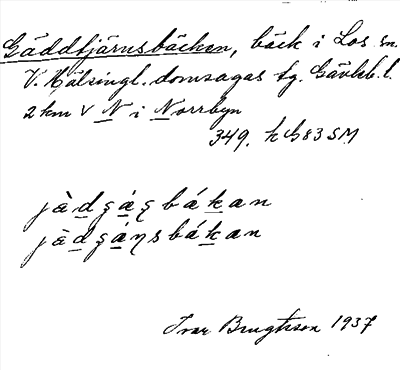 Gäddtjärnsbäcken, bäck i Los sn.
V. Hälsingl. domsagas tg. Gävleb. l.
2 km V N i Norrbyn
349. h G83 SM
jàdʂáʂbákan
jàdʂáŋsbákan
Ivar Brugtsson 1937